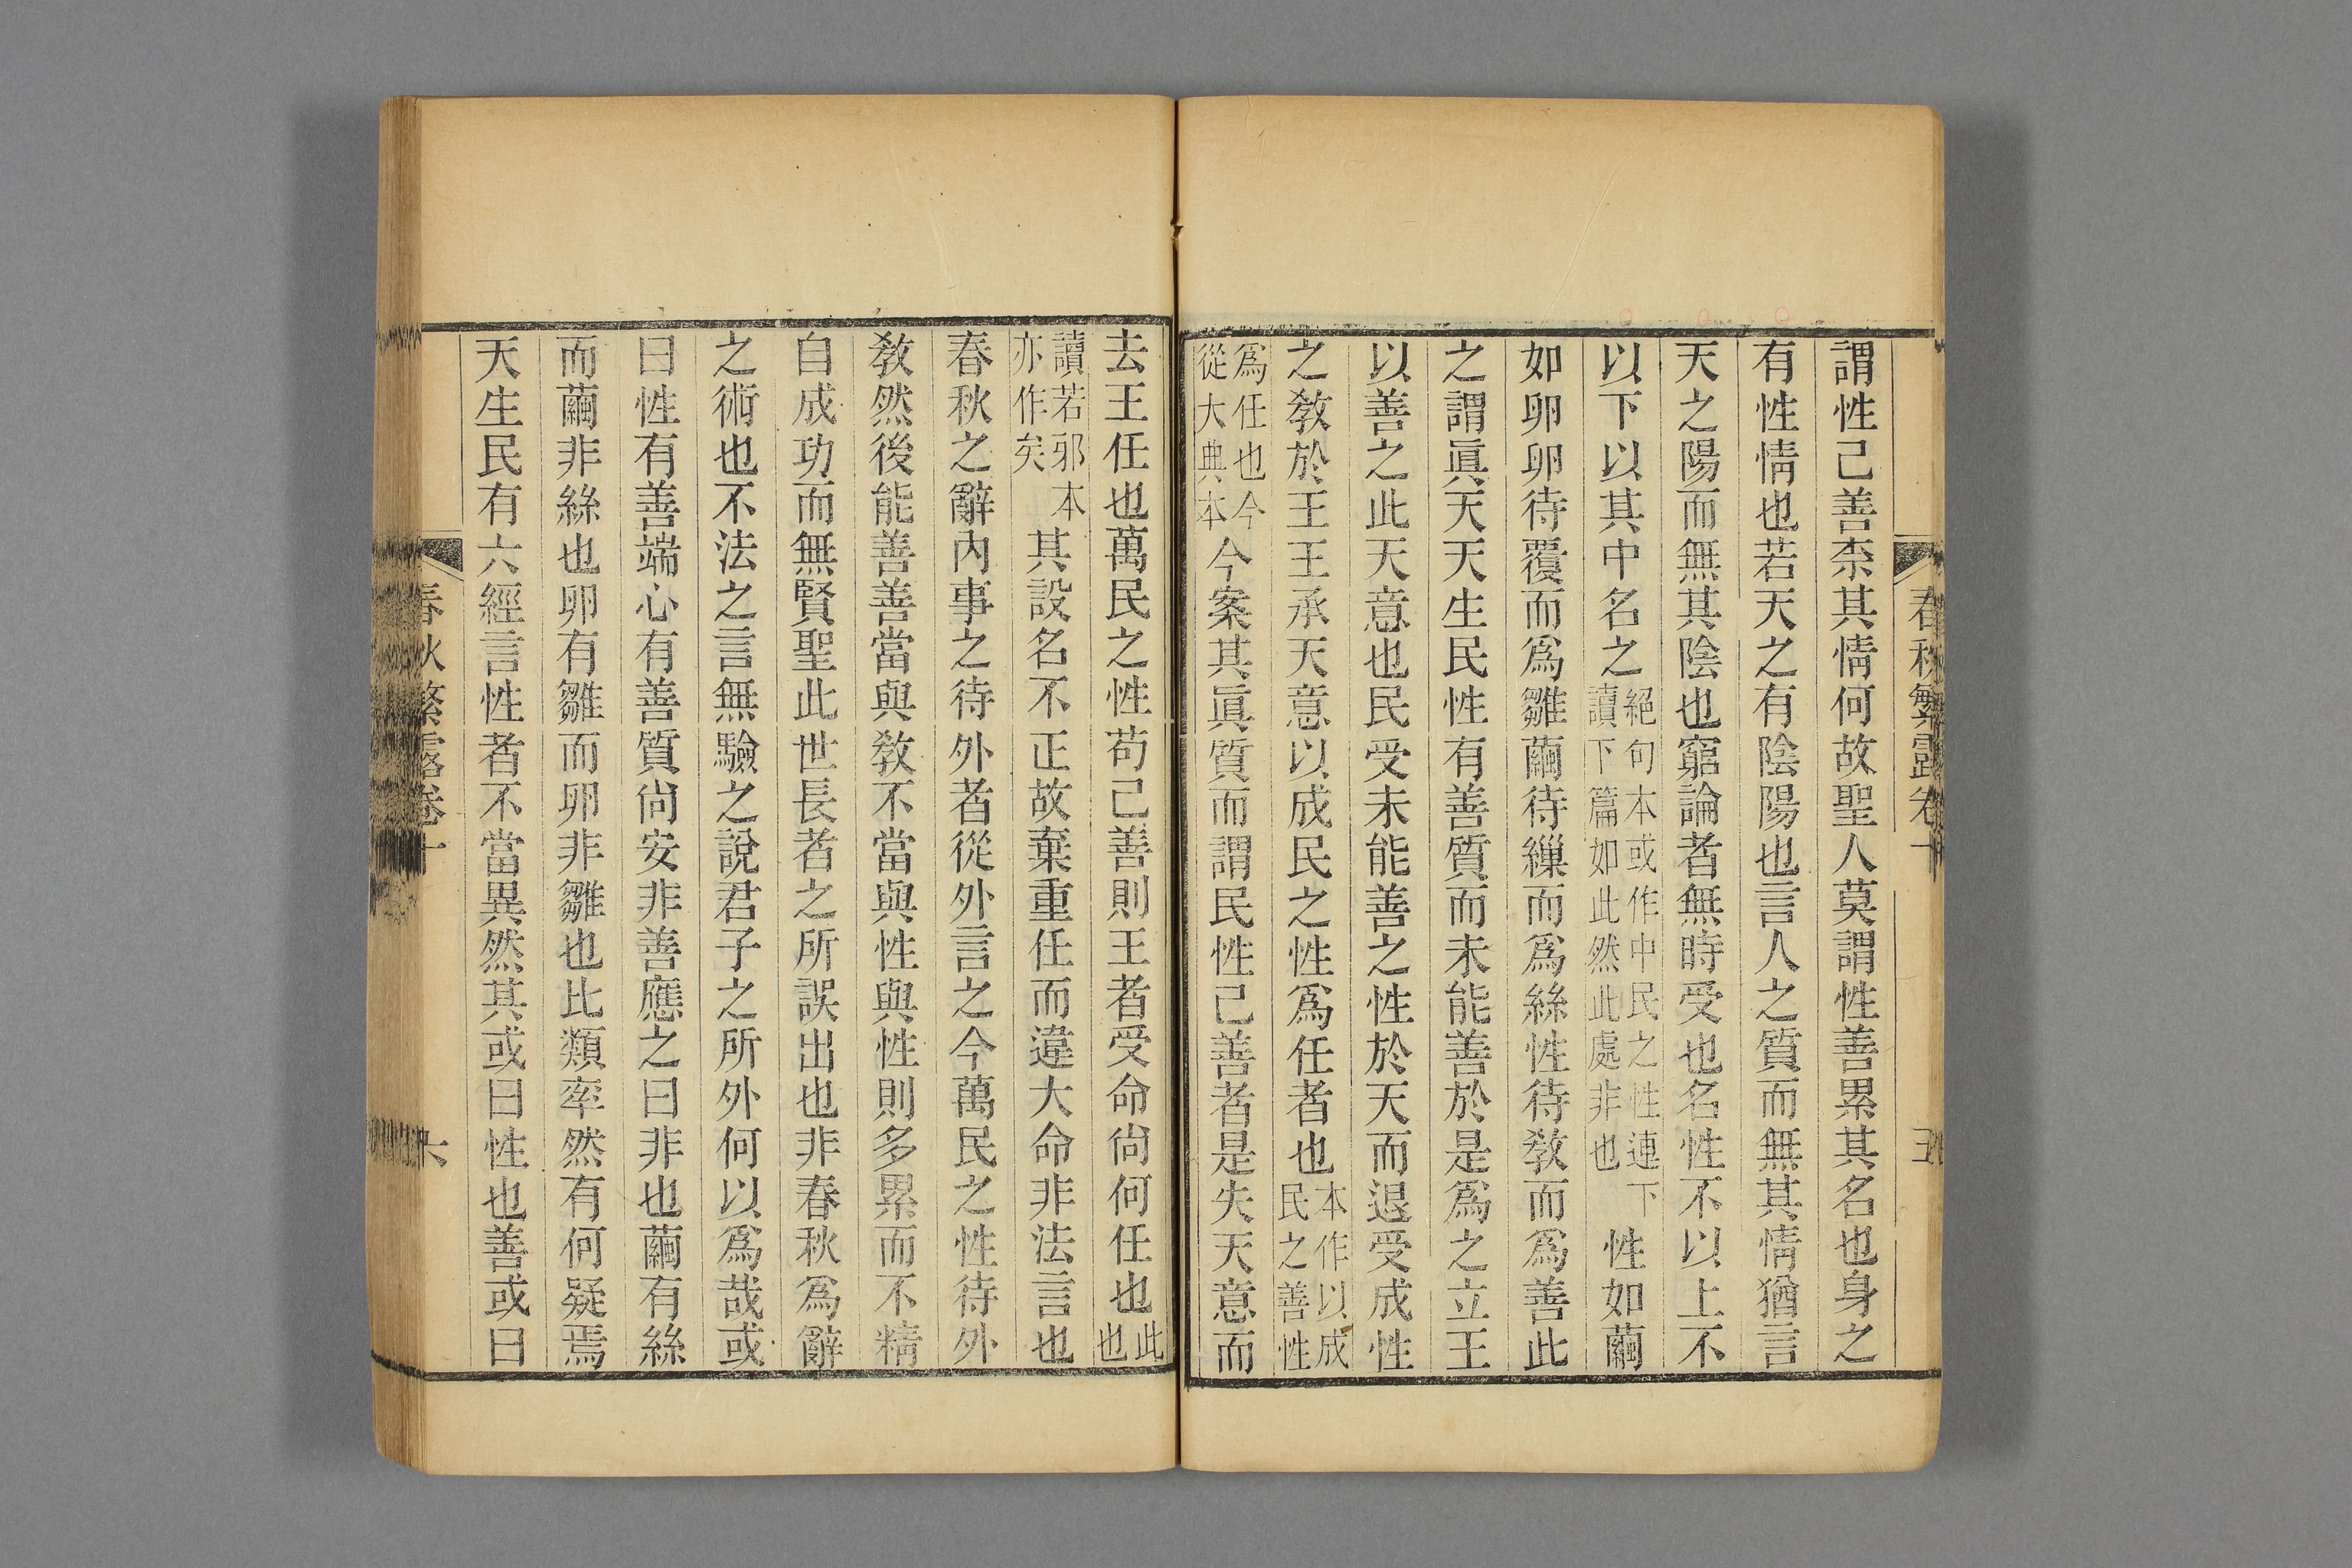 謂性已善柰其情何故聖人莫謂性善累其名也身之
有性情也若天之有陰陽也言人之質而無其情猶言
天之陽而無其陰也窮論者無時受也名性不以上不
以下以其中名之絕句本或作中民之性連下讀下篇如此然此處非也性如繭
如卵卵待覆而爲雛繭待繅而爲絲性待教而爲善此
之謂眞天天生民性有善質而未能善於是爲之立王
以善之此天意也民受未能善之性於天而退受成性
之敎於王王承天意以成民之性爲任者也本作以成民之善性
爲任也今從大典本今案其眞質而謂民性已善者是失天意而
去王任也萬民之性苟已善則王者受命尙何任也此也
讀若邪本亦作矣其設名不正故棄重任而違大命非法言也
春秋之辭內事之待外者從外言之今萬民之性待外
敎然後能善善當與敎不當與性與性則多累而不精
自成功而無賢聖此世長者之所誤出也非春秋爲辭
之術也不法之言無驗之說君子之所外何以爲哉或
曰性有善端心有善質尙安非善應之曰非也繭有絲
而繭非絲也卵有雛而卵非雛也比類率然有何疑焉
天生民有六經言性者不當異然其或曰性也善或曰
春秋繁露卷十
六